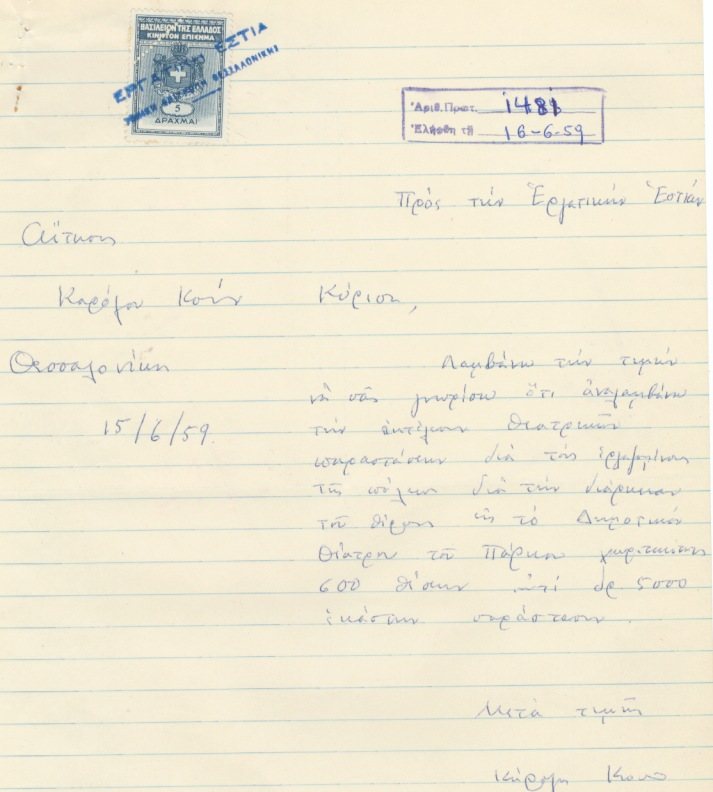 ΒΑΣΙΛΕΙΟΝ ΤΗΣ ΕΛΛΑΔΟΣ
ΚΙΝΗΤΟΝ ΕΠΙΣΗΜΑ
5
ΔΡΑΧΜΑΙ
ΕΡΓΑΤΙΚΗ ΕΣΤΙΑ
ΘΕΣΣΑΛΟΝΙΚΗΣ
Ἀριθ. Πρωτ. 1481
Ἐλήφθη τῇ 16-6-59
Πρὸς τὴν Ἐργατικὴν Ἑστίαν
Αἴτησις
Καρόλου Κοὺν Κύριοι,
Θεσσαλονίκη Λαμβάνω τὴν τιμὴν
νὰ σᾶς γνωρίσω ὅτι ἀναλαμβάνω
15/6/59 τὴν ἐκτέλεσιν θεατρικῶν
παραστάσεων διὰ τοὺς ἐργαζομένους
τῆς πόλεως διὰ τὴν διάρκειαν
τοῦ θέρους εἰς τὸ Δημοτικὸν
Θέατρον τοῦ Πάρκου χωρητικότητος
600 θέσεων ἀντὶ δρ 5000
ἑκάστην παράστασιν.
Μετὰ τιμῆς
Κάρολος Κουν